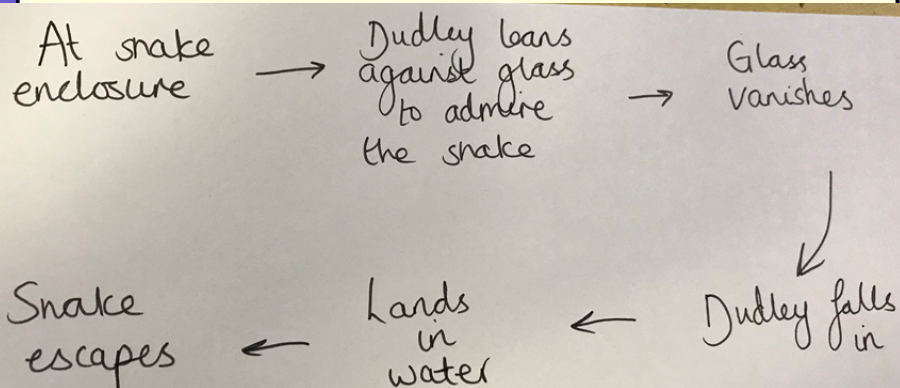 At snake
enclosure
Dudley leans
against glass
to admire
the snake
Glass
vanishes
Dudley falls
in
Lands
in
water
Snake
escapes